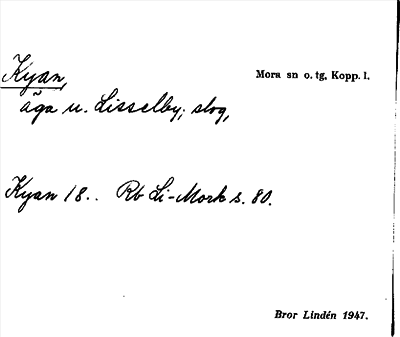 Kyan,
Mora sn o. tg, Kopp. l.
äga u. Lisselby; slog,
Kyan 18.. Rb Li-Mork s. 80.
Bror Lindén 1947.